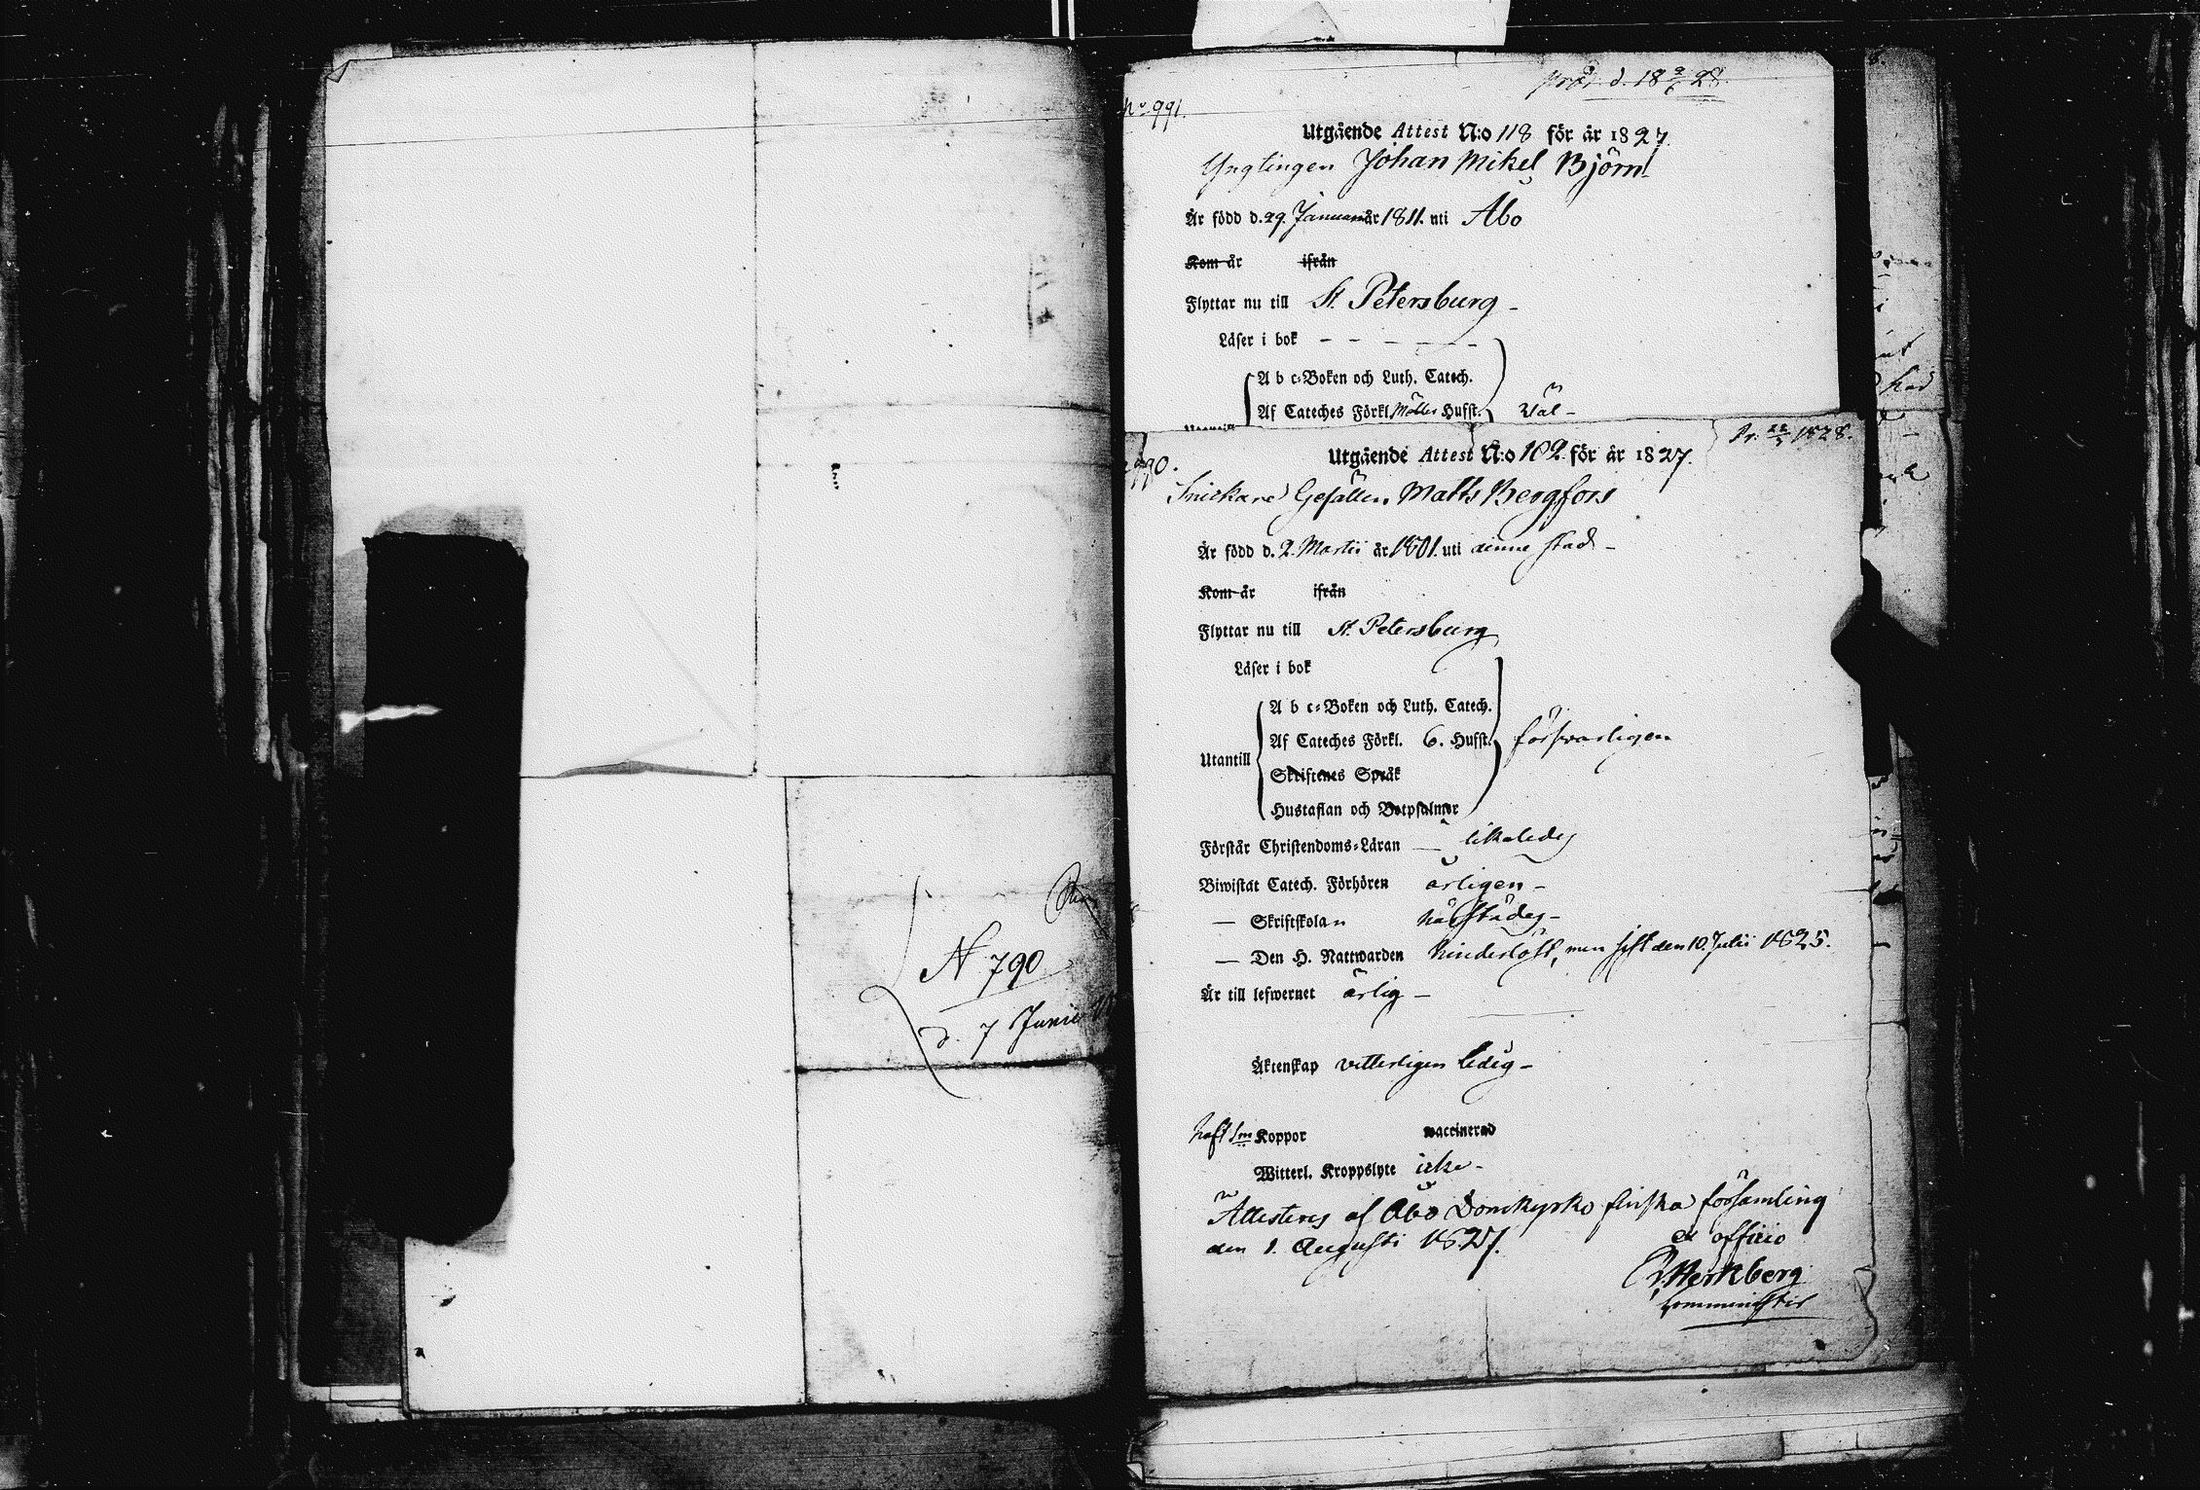 N 790
d. 7 Junii
No 991.
prod. d. 18 9/6 28.
Utgående Attest N:o 118 för år 1827.
Ynglingen Johan Mikel Björn
Är född d. 29. Januari år 1811. uti Åbo
Kom år ifrån
Flyttar nu till St. Petersburg -
Läser i bok - - - - -
A b c-Boken och Luth. Catech.
Af Cateches Förkl. Hufst. väl -
990.
Pr. 1828.
Utgående Attest N:o 102. för år 1827.
Snickare Gesällen Matts Bergfors
Är född d. 2. Martii år 1801. uti denna stad -
Kom år ifrån
Flyttar nu till St. Petersburg
Läser i bok
A b c-Boken och Luth. Catech.
Af Cateches Förkl. 6. Hufst. försvarligen
Utantill
Skriftenes Språk
Hustaflan och Botpsalmer
Förstår Christendoms-Läran — likaledes
Biwistat Catech. Förhören årligen -
— Skriftskolan härstädes -
— Den H. Nattwarden hinderlöst, men sist den 10. Julii 1825.
Är till lefwernet ärlig -
Äktenskap vitterligen ledig -
haft Koppor vaccinerad
Witterl. Kroppslyte icke -
Attesteres af Åbo Domkyrko finska församling
den 1. Augusti 1827.
ex officio
comminister